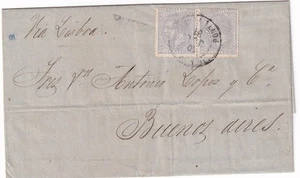 Via Lisboa.
Antonio Lopez y Cª
Buenos aires.